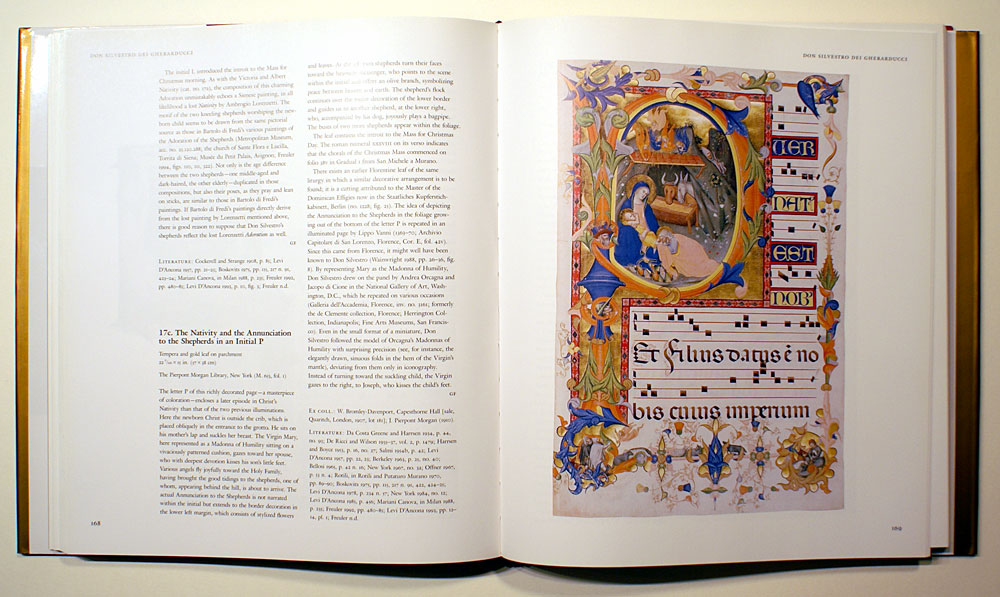 DON SILVESTRO DEI GHERARDUCCI
The initial I, introduced the introit to the Mass for
Christmas morning. As with the Victoria and Albert
Nativity (cat. no. 17a), the composition of this charming
Adoration unmistakably echoes a Sienese painting, in all
likelihood a lost Nativity by Ambrogio Lorenzetti. The
motif of the two kneeling shepherds worshiping the new-
born child seems to be drawn from the same pictorial
source as those in Bartolo di Fredi's various paintings of
the Adoration of the Shepherds (Metropolitan Museum,
the church of Santa Flora e Lucilla,
Torrita di Siena; Musée du Petit Palais, Avignon; Freuler
1994, figs. Not only is the age difference
between the two shepherds—one middle-aged and
dark-haired, the other elderly—duplicated in those
compositions, but also their poses, as they pray and lean
on sticks, are similar to those in Bartolo di Fredi's
paintings. If Bartolo di Fredi's paintings directly derive
from the lost painting by Lorenzetti mentioned above,
there is good reason to suppose that Don Silvestro's
shepherds reflect the lost Lorenzetti Adoration as well.
GF
LITERATURE: Cockerell and Strange 1908, p. 81; Levi
D'Ancona 1957, pp. Boskovits 1975, pp. 215, 217 n. 91,
Mariani Canova, in Milan 1988, p. Freuler 1992,
pp. 480–82; Levi D'Ancona 1993, p. 10, fig. Freuler n.d.
17c. The Nativity and the Annunciation
to the Shepherds in an Initial P
Tempera and gold leaf on parchment
The Pierpont Morgan Library, New York (M. 653, fol. 1)
The letter P of this richly decorated page—a masterpiece
of coloration—encloses a later episode in Christ's
Nativity than that of the two previous illuminations.
Here the newborn Christ is outside the crib, which is
placed obliquely in the entrance to the grotto. He sits on
his mother's lap and suckles her breast. The Virgin Mary,
here represented as a Madonna of Humility sitting on a
vivaciously patterned cushion, gazes toward her spouse,
who with deepest devotion kisses his son's little feet.
Various angels fly joyfully toward the Holy Family,
having brought the good tidings to the shepherds, one of
whom, appearing behind the hill, is about to arrive. The
actual Annunciation to the Shepherds is not narrated
within the initial but extends to the border decoration in
the lower left margin, which consists of stylized flowers
168
shepherds turn their faces
toward the who points to the scene
within the an olive branch, symbolizing
peace between and earth. The shepherd's flock
continues over the decoration of the lower border
and guides us to another shepherd, at the lower right,
who, accompanied by his dog, joyously plays a bagpipe.
The busts of two more shepherds appear within the foliage.
The leaf contains the introit to the Mass for Christmas
Day. The roman numeral on its verso indicates
that the chorals of the Christmas Mass commenced on
folio 38v in Gradual 1 from San Michele a Murano.
There exists an earlier Florentine leaf of the same
liturgy in which a similar decorative arrangement is to be
found; it is a cutting attributed to the Master of the
Dominican Effigies now in the Staatliches Kupferstich-
kabinett, Berlin (no. The idea of depicting
the Annunciation to the Shepherds in the foliage grow-
ing out of the bottom of the letter P is repeated in an
illuminated page by Lippo Vanni (1360–70; Archivio
Capitolare di San Lorenzo, Florence, Cor. E, fol. 42v).
Since this came from Florence, it might well have been
known to Don Silvestro (Wainwright 1988, pp. 26–36, fig.
8). By representing Mary as the Madonna of Humility,
Don Silvestro drew on the panel by Andrea Orcagna and
Jacopo di Cione in the National Gallery of Art, Wash-
ington, D.C., which he repeated on various occasions
(Galleria dell'Accademia, Florence, inv. no. formerly
the de Clemente collection, Florence; Herrington Col-
lection, Indianapolis; Fine Arts Museums, San Francis-
co). Even in the small format of a miniature, Don
Silvestro followed the model of Orcagna's Madonnas
of Humility with surprising precision (see, for instance, the
elegantly drawn, sinuous folds in the hem of the Virgin's
mantle), deviating from them only in iconography.
Instead of turning toward the suckling child, the Virgin
gazes to the right, to Joseph, who kisses the child's feet.
GF
EX COLL.: W. Bromley-Davenport, Capesthorne Hall [sale,
Quaritch, London, 1907, lot J. Pierpont Morgan
LITERATURE: Da Costa Greene and Harrsen 1934, p. 44,
no. De Ricci and Wilson 1935–37, vol. 2, p. Harrsen
and Boyce 1953, p. 16, no. Salmi p. 42; Levi
D'Ancona 1957, pp. Berkeley 1963, p. no. 40;
Bellosi 1961, p. New York 1967, no. Offner 1967,
p. Rotili, in Rotili and Putaturo Murano 1970,
pp. Boskovits 1975, pp. 215, 217 n. 91, 422, 424–25;
Levi D'Ancona 1978, p. New York 1984, no.
Levi D'Ancona 1985, p. Mariani Canova, in Milan 1988,
p. Freuler 1992, pp. 480–82; Levi D'Ancona 1993, pp.
Freuler n.d.
DON SILVESTRO DEI GHERARDUCCI
P
UER
NAT
EST
NOB'
Et filius datus ē no
bis cuius imperium
169